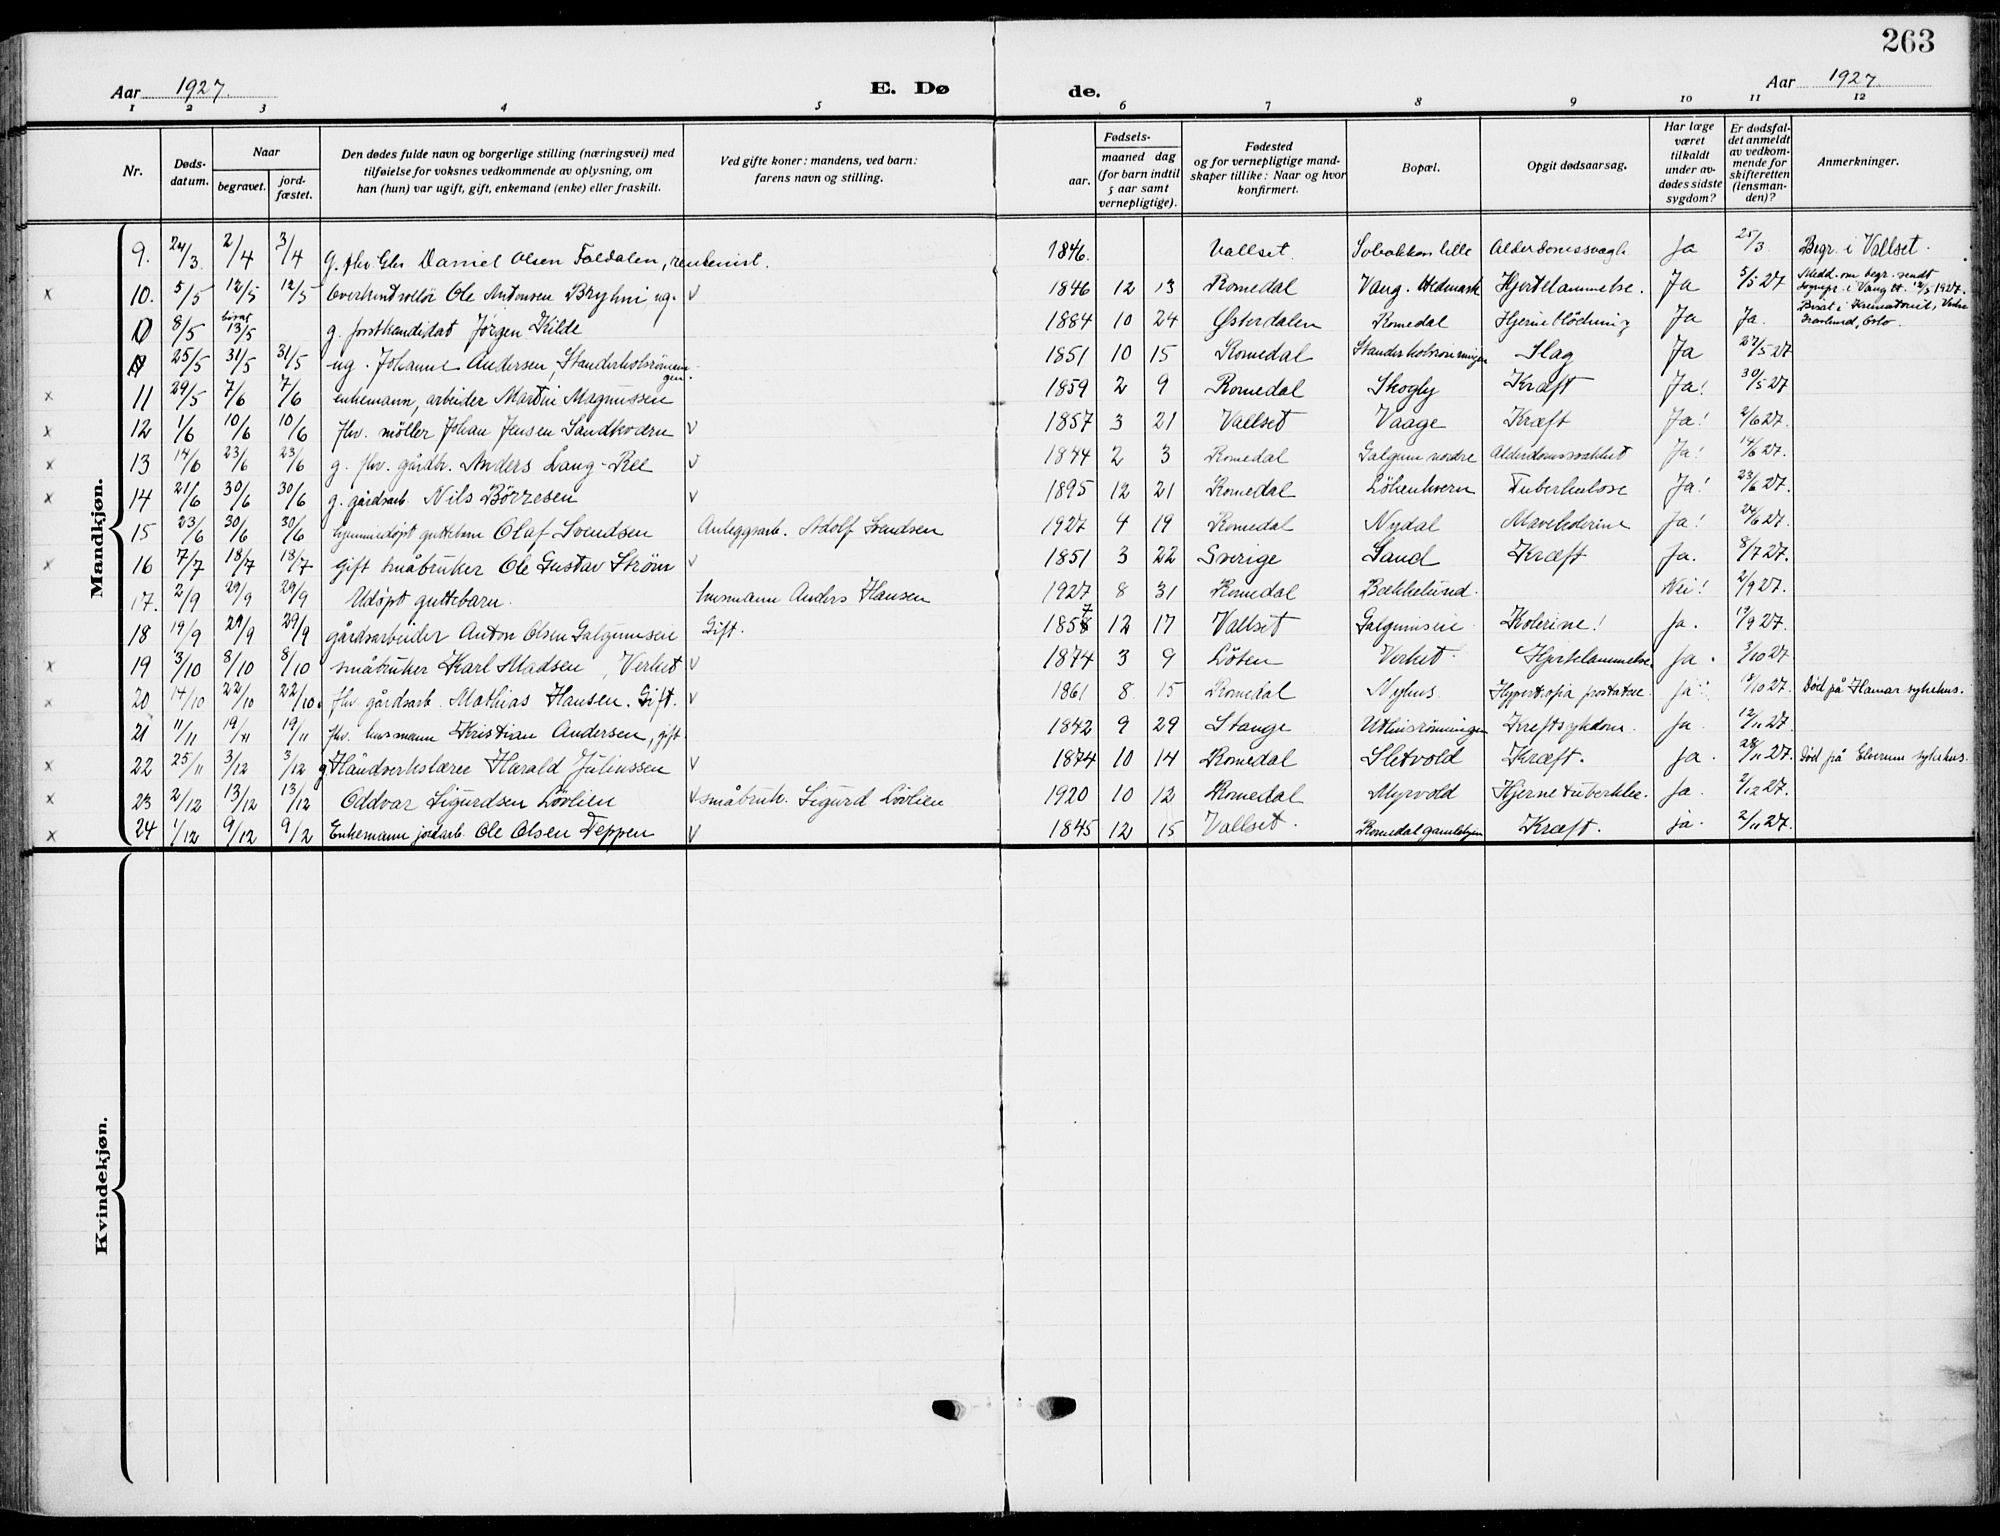 263
Aar 1927. E. Dø de. Aar 1927.
1 2 3 4 5 6 7 8 9 10 11 12
Nr. Døds-datum. Naar begravet. jord-fæstet. Den dødes fulde navn og borgerlige stilling (næringsvei) med tilføielse for voksnes vedkommende av oplysning, om han (hun) var ugift, gift, enkemand (enke) eller fraskilt. Ved gifte koner: mandens, ved barn: farens navn og stilling. Fødsels- aar. maaned dag (for barn indtil 5 aar samt vernepligtige). Fødested og for vernepligtige mand-skaper tillike: Naar og hvor konfirmert. Bopæl. Opgit dødsaarsag. Har læge været tilkaldt under av-dødes sidste sygdom? Er dødsfal-det anmeldt av vedkom-mende for skifteretten (lensman-den)? Anmerkninger.
Mandkjøn.
9. 24/3 2/4 3/4 g. fhv. Daniel Olsen Foldalen, rentenist. 1846. Vallset. lille Alderdomssvagh. Ja 25/3. Begr. i Vallset.
x 10. 5/5 12/5 12/5 Overkontrollør Ole Antonsen Bryhni, ug. v 1846 12 13 Romedal Vang. Hedmark Hjertelammelse. Ja 5/5 27 Medd. om begr. sendt sognepr. i Vang H. 12/5 1927.
8/5 bisat 13/5 g. forstkandidat Jørgen Kilde 1884 10 24 Østerdalen Romedal Hjerneblödning Ja Ja. Bisat i Krematoriet, Oslo
25/5 31/5 31/5 ug. Johanne Andersen, 1851 10 15 Romedal Slag Ja 27/5 27
x 11 29/5 7/6 7/6 enkemann, arbeider Martin Magnussen 1859 2 9 Romedal Skogly Kræft Ja! 30/5 27
x 12 1/6 10/6 10/6 fhv. møller Johan Jensen Sandkværn v 1857 3 21 Vallset Vaage Kræft Ja! 2/6 27.
x 13 14/6 23/6 23/6 g. fhv. gårdbr. Anders Lang-Ree v 1844 2 3 Romedal Galgum nordre Alderdomssvakhet Ja! 14/6 27.
x 14 21/6 30/6 30/6 g. gårdsarb. Nils Börresen v 1895 12 21 Romedal Tuberkulose Ja! 23/6 27.
15 23/6 30/6 30/6 hjemmedøpt guttebarn Olaf Svendsen Anleggsarb. Adolf Svendsen 1927 4 19 Romedal Nydal Mavekolerine Ja! 24/6 27.
x 16 7/7 18/7 18/7 gift småbruker Ole Gustav Strøm v 1851 3 22 Sverige Sand Kræft Ja. 8/7 27.
17. 2/9 29/9 29/9 Udöpt guttebarn. husmann Anders Hansen 1927 8 31 Romedal Bækkelund. Nei! 2/9 27.
18 19/9 29/9 29/9 gårdsarbeider Anton Olsen Galgumseie Gift. 1857 12 17 Vallset Galgumseie Kolerine! Ja. 19/9 27.
x 19 3/10 8/10 8/10 småbruker Karl Madsen, Verket v 1874 3 9 Löten Verket. Hjertelammelse Ja. 3/10 27
x 20 14/10 22/10 22/10 fhv. gårdsarb. Mathias Hansen. Gift. v 1861 8 15 Romedal Nyhus. Hypertrofia prostatae. Ja 27. Död på Hamar sykehus.
21 11/11 19/11 19/11 fhv. husmann Kristian Andersen, gift 1842 9 29 Stange Kreftsykdom. Ja. 12/11 27
x 22 25/11 3/12 3/12 g Håndverkslærer Harald Juliussen v 1874 10 14 Romedal Sletvold Kræft. Ja. 28/11 27. Död på Elverum sykehus.
x 23 2/12 13/12 13/12 Oddvar Sigurdsen Lövlien v småbruk. Sigurd Lövlien 1920 10 12 Romedal Myrvold Hjernetuberkl. Ja. 2/12 27.
x 24 1/12 9/12 9/12 Enkemann jordarb. Ole Olsen Teppen v 1845 12 15 Vallset. Romedal gamlehjem Kræft. ja. 2/11 27.
Kvindekjøn.